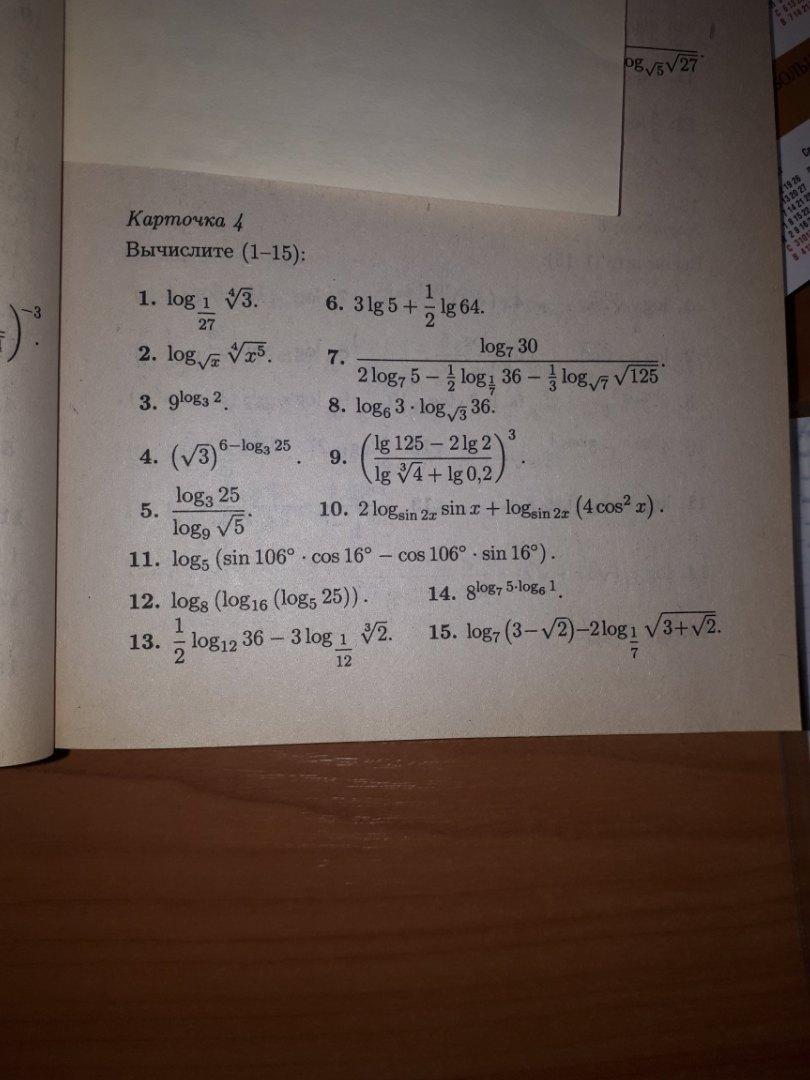 og_{√5}√27.
)^{-3}.
Карточка 4
Вычислите (1–15):
1. log_{1/27} ∜3. 6. 3 lg 5 + 1/2 lg 64.
2. log_{√x} ∜(x^5). 7. log_7 30 / (2 log_7 5 − 1/2 log_{1/7} 36 − 1/3 log_{√7} √125).
3. 9^{log_3 2}. 8. log_6 3 · log_{√3} 36.
4. (√3)^{6−log_3 25}. 9. ((lg 125 − 2 lg 2)/(lg ∛4 + lg 0,2))^3.
5. log_3 25 / log_9 √5. 10. 2 log_{sin 2x} sin x + log_{sin 2x} (4 cos^2 x).
11. log_5 (sin 106° · cos 16° − cos 106° · sin 16°).
12. log_8 (log_16 (log_5 25)). 14. 8^{log_7 5·log_6 1}.
13. 1/2 log_12 36 − 3 log_{1/12} ∛2. 15. log_7 (3−√2)−2 log_{1/7} √(3+√2).